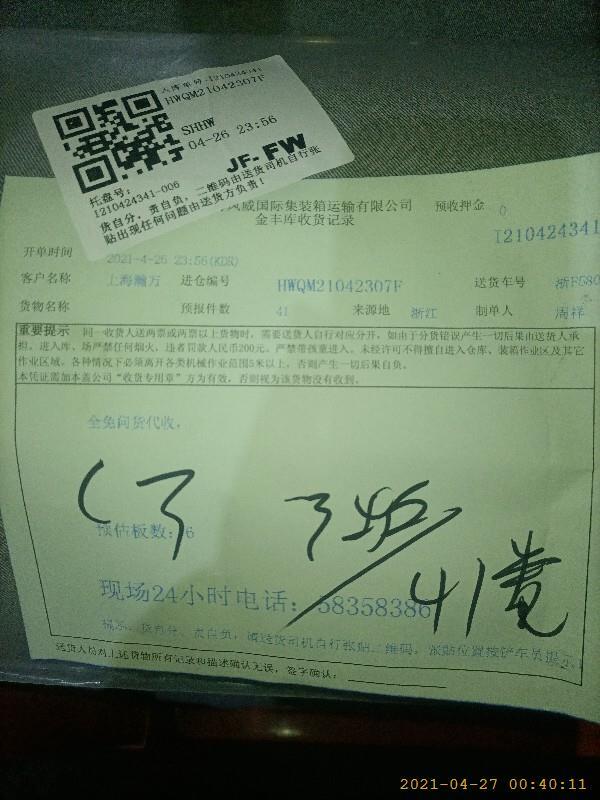 入库单号:I210424341
HWQM21042307F
SHHW
04-26 23:56
JF-FW
托盘号:
I210424341-006
货自分,责自负,二维码由送货司机自行张
贴出现任何问题由送货方负责!
威国际集装箱运输有限公司 预收押金 0
金丰库收货记录
I210424341
开单时间 2021-4-26 23:56(KDR)
客户名称 上海瀚万 进仓编号 HWQM21042307F 送货车号 浙F680
货物名称 预报件数 41 来源地 浙江 制单人 周祥
重要提示 同一收货人送两票或两票以上货物时,需要送货人自行对应分开,如由于分货错误产生一切后果由送货人承
担,进入库、场严禁任何烟火,违者罚款人民币200元。严禁带孩童进入。未经许可不得擅自进入仓库、装箱作业区及其它
作业区域。各种情况下必须离开各类机械作业范围5米以上,否则产生一切后果自负。
本凭证需加本盖公司“收货专用章”方为有效,否则视为该货物没有收到。
全免问货代收,
预估板数: 6
41
现场24小时电话: 58358386
货自分、责自负,请送货司机自行张贴二维码,张贴位置按铲车员
送货人员对上述货物所有记录和描述确认无误,签字确认:
2021-04-27 00:40:11